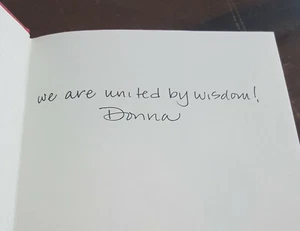 we are united by wisdom!
Donna